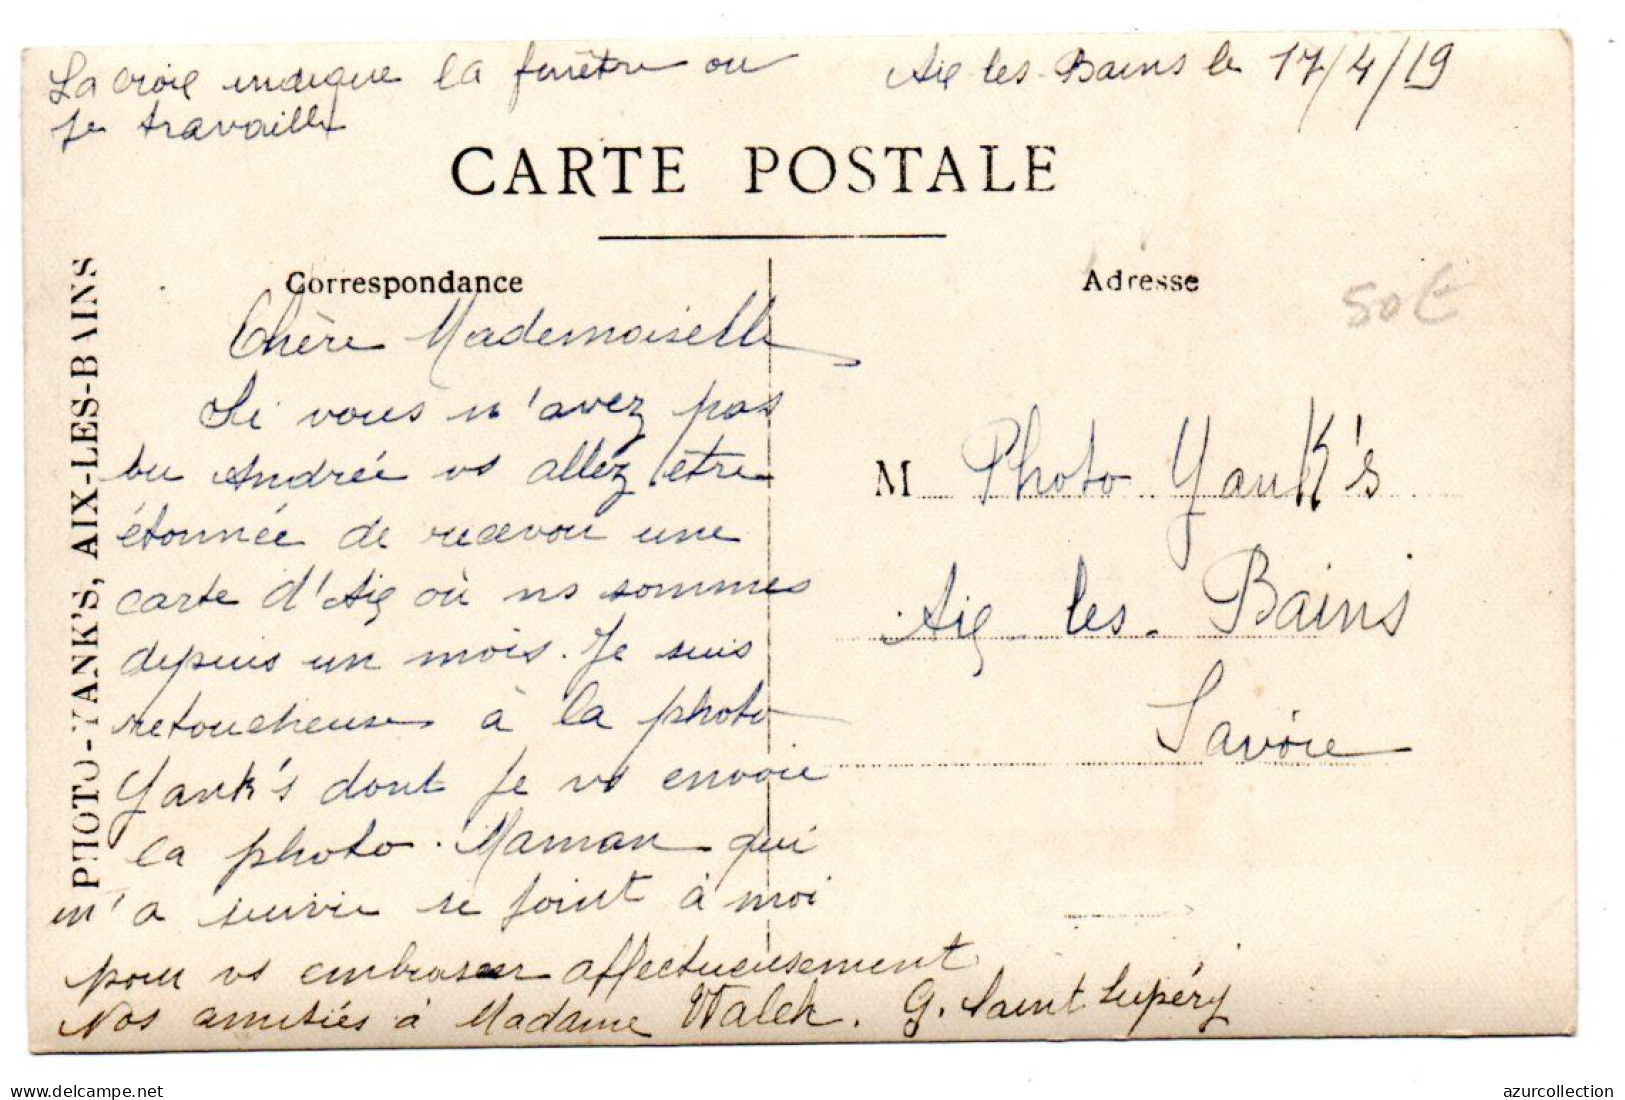 La croix indique la fenêtre ou
je travaille
Aix les Bains le 17/4/19
CARTE POSTALE
Correspondance
Adresse
50€
PHOTO-YANK'S, AIX-LES-BAINS
Chère Mademoiselle
Si vous n'avez pas
vu Andrée vs allez être
étonnée de recevoir une
carte d'Aix où ns sommes
depuis un mois. Je suis
retoucheuse à la photo
Yank's dont je vs envoie
la photo. Maman qui
m'a suivie se joint à moi
pour vs embrasser affectueusement
Nos amitiés à Madame Walch. G. Saint Lupéry
M Photo Yank's
Aix les Bains
Savoie
delcampe.net
azurcollection